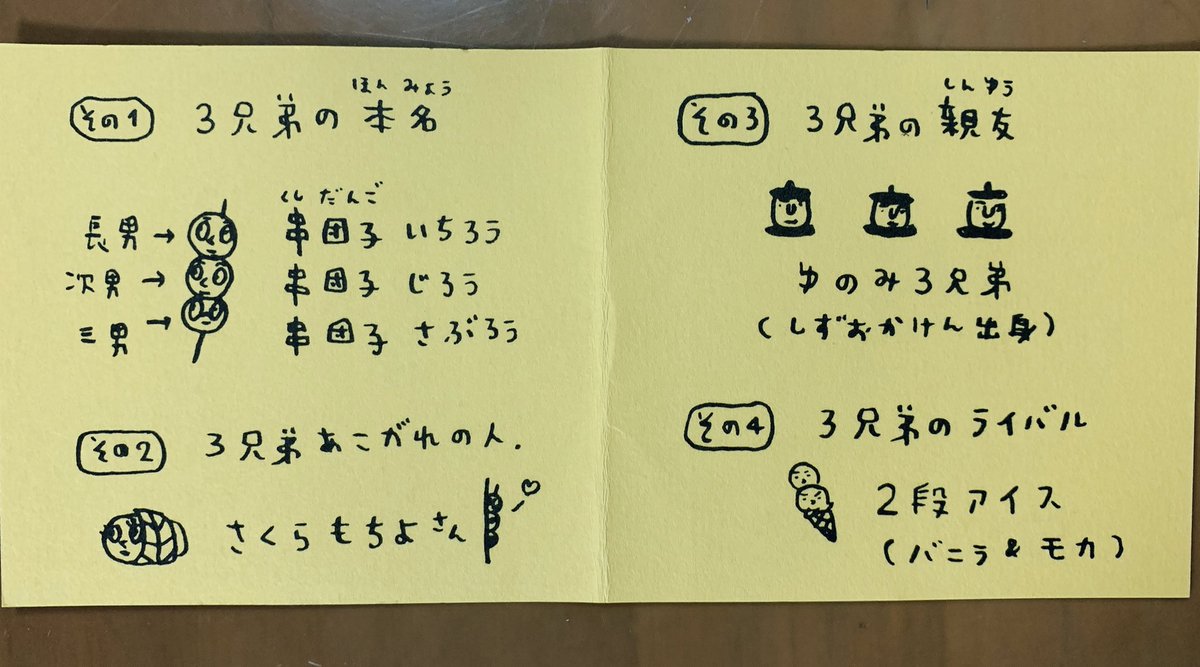 その1 3兄弟の本名
ほんみょう
長男→ 串団子 いちろう
くしだんご
次男→ 串団子 じろう
三男→ 串団子 さぶろう
その2 3兄弟あこがれの人.
さくらもちよさん
その3 3兄弟の親友
しんゆう
ゆのみ3兄弟
(しずおかけん出身)
その4 3兄弟のライバル
2段アイス
(バニラ&モカ)